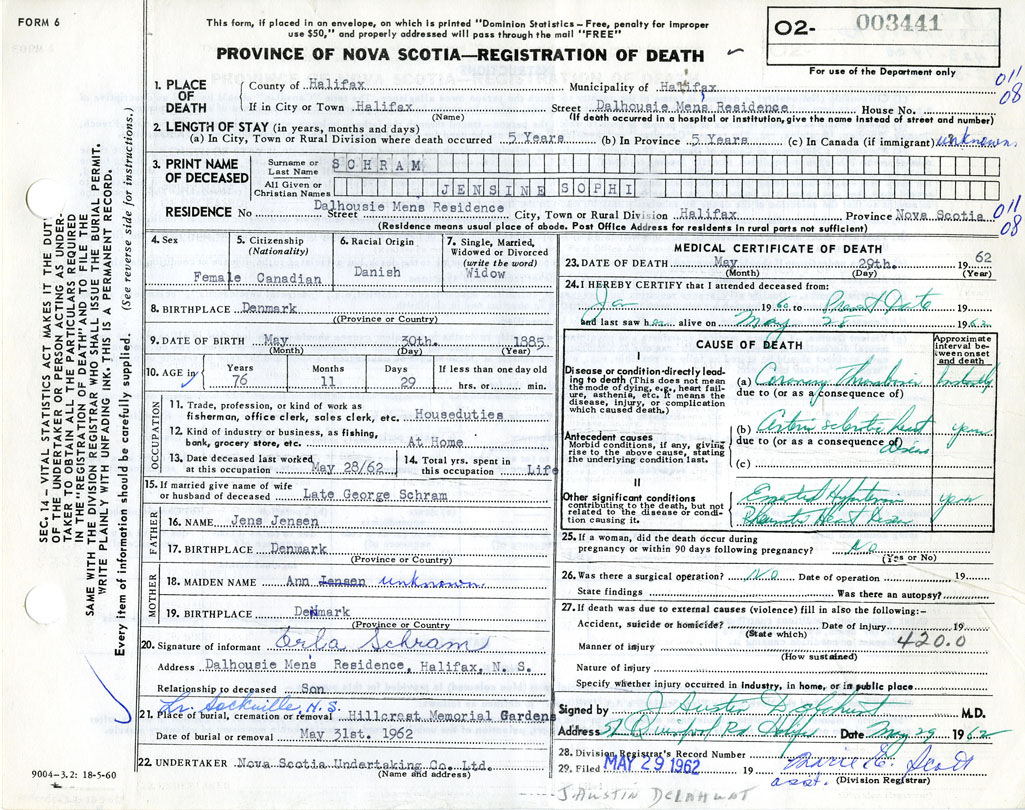 FORM 6
This form, if placed in an envelope, on which is printed "Dominion Statistics — Free, penalty for improper
use $50," and properly addressed will pass through the mail "FREE"
PROVINCE OF NOVA SCOTIA—REGISTRATION OF DEATH
O2- 003441
For use of the Department only
011
08
1. PLACE OF DEATH
County of Halifax Municipality of Halifax
If in City or Town Halifax Street Dalhousie Mens Residence House No.
(Name) (If death occurred in a hospital or institution, give the name instead of street and number)
2. LENGTH OF STAY (in years, months and days)
(a) In City, Town or Rural Division where death occurred 5 Years (b) In Province 5 Years (c) In Canada (if immigrant) unknown
3. PRINT NAME OF DECEASED
Surname or Last Name SCHRAM
All Given or Christian Names JENSINE SOPHI
RESIDENCE No Street Dalhousie Mens Residence City, Town or Rural Division Halifax Province Nova Scotia
011
08
(Residence means usual place of abode. Post Office Address for residents in rural parts not sufficient)
4. Sex Female
5. Citizenship (Nationality) Canadian
6. Racial Origin Danish
7. Single, Married, Widowed or Divorced (write the word) Widow
8. BIRTHPLACE Denmark
((Province or Country)
9. DATE OF BIRTH May 30th. 1885
(Month) (Day) (Year)
10. AGE in Years 76 Months 11 Days 29 If less than one day old
hrs. or min.
OCCUPATION
11. Trade, profession, or kind of work as
fisherman, office clerk, sales clerk, etc. Houseduties
12. Kind of industry or business, as fishing,
bank, grocery store, etc. At Home
13. Date deceased last worked
at this occupation May 28/62
14. Total yrs. spent in
this occupation Life
15. If married give name of wife
or husband of deceased Late George Schram
FATHER
16. NAME Jens Jensen
17. BIRTHPLACE Denmark
(Province or Country)
MOTHER
18. MAIDEN NAME Ann Jensen unknown
19. BIRTHPLACE Denmark
(Province or Country
20. Signature of informant Erla Schram
Address Dalhousie Men's Residence, Halifax, N. S.
Relationship to deceased Son
Lr. Sackville, N.S.
21. Place of burial, cremation or removal Hillcrest Memorial Gardens
Date of burial or removal May 31st. 1962
22. UNDERTAKER Nova Scotia Undertaking Co. Ltd.
(Name and address)
MEDICAL CERTIFICATE OF DEATH
23. DATE OF DEATH May 29th. 1962
(Month) (Day) (Year)
24. I HEREBY CERTIFY that I attended deceased from:
Jan 1960 to Present Date 19
and last saw her alive on May 28 1962
CAUSE OF DEATH
Approximate interval between onset and death
I
Disease or condition-directly leading to death (This does not mean
the mode of dying, e.g., heart failure, asthenia, etc. It means the
disease, injury, or complication which caused death.)
(a) Coronary Thrombosis
due to (or as a consequence of)
Antecedent causes
Morbid conditions, if any, giving
rise to the above cause, stating
the underlying condition last.
(b) Arterio sclerotic heart disease years
due to (or as a consequence of)
(c)
II
Other significant conditions
contributing to the death, but not
related to the disease or condition causing it.
Essential Hypertension years
Rheumatic Heart Disease
25. If a woman, did the death occur during
pregnancy or within 90 days following pregnancy? NO
(Yes or No)
26. Was there a surgical operation? NO Date of operation 19
State findings Was there an autopsy?
27. If death was due to external causes (violence) fill in also the following:-
Accident, suicide or homicide? Date of injury 19
(State which)
420.0
Manner of injury
(How sustained)
Nature of injury
Specify whether injury occurred in industry, in home, or in public place
Signed by J Austin Delahunt M.D.
Address 52 Quinpool Rd Halifax Date May 29 1962
28. Division Registrar's Record Number
29. Filed MAY 29 1962 19 Marie E. Scott
asst. (Division Registrar)
J AUSTIN DELAHUNT
SEC. 14 – VITAL STATISTICS ACT MAKES IT THE DUTY
OF THE UNDERTAKER OR PERSON ACTING AS UNDER-
TAKER TO OBTAIN ALL THE PARTICULARS REQUIRED
IN THE "REGISTRATION OF DEATH" AND TO FILE THE
SAME WITH THE DIVISION REGISTRAR WHO SHALL ISSUE THE BURIAL PERMIT.
WRITE PLAINLY WITH UNFADING INK. THIS IS A PERMANENT RECORD.
Every item of information should be carefully supplied. (See reverse side for instructions.)
9004-3.2: 18-5-60